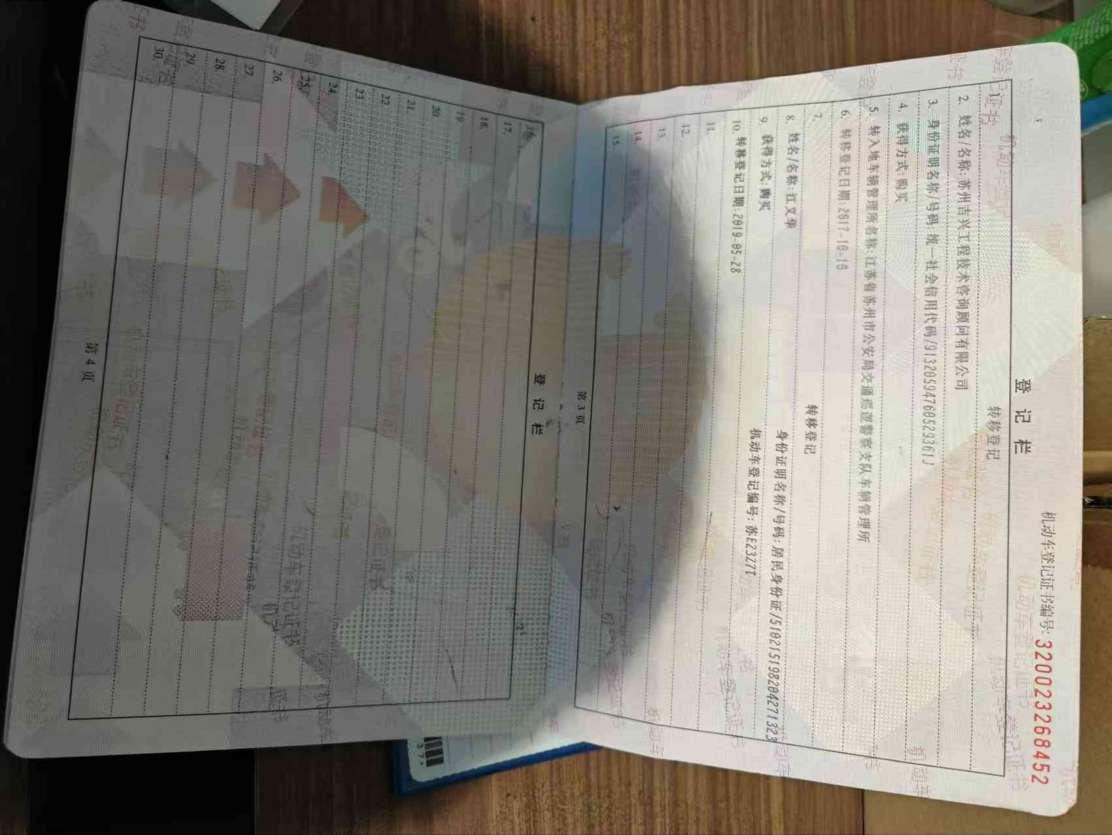 机动车登记证书编号: 320023268452
登记栏
1. 转移登记
2. 姓名/名称:苏州吉兴工程技术咨询顾问有限公司
3. 身份证明名称/号码:统一社会信用代码/91320594760529361J
4. 获得方式:购买
5. 转入地车辆管理所名称:江苏省苏州市公安局交通巡逻警察支队车辆管理所
6. 转移登记日期:2017-10-18
7. 转移登记
8. 姓名/名称:江义华 身份证明名称/号码:居民身份证/510215198204271323
9. 获得方式:购买 机动车登记编号:苏E2327T
10. 转移登记日期:2019-05-28
11.
12.
13.
14.
15.
第 3 页
登记栏
16.
17.
18.
19.
20.
21.
22.
23.
24.
25.
26.
27.
28.
29.
30.
第 4 页